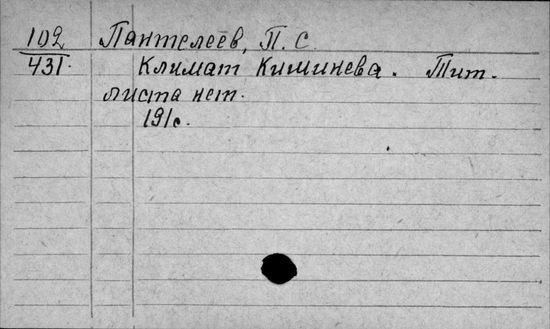 102 Пантелеев, П. С.
431. Климат Кишинева. Тит.
листа нет.
191с.